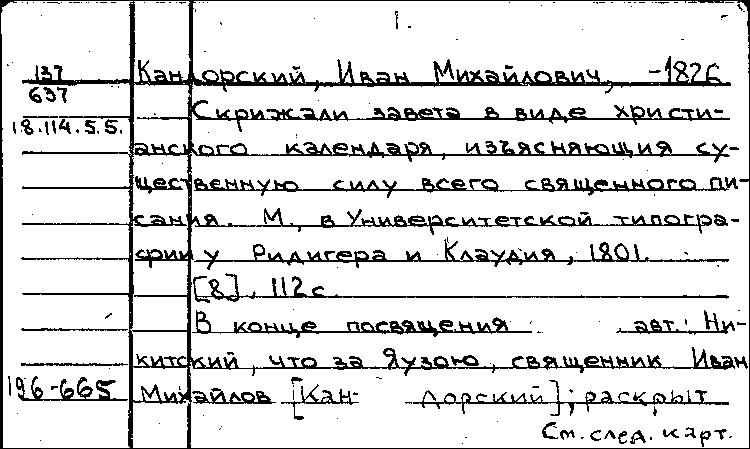 1.
137 Кандорский, Иван Михайлович, -1826
637 Скрижали завета в виде христи-
18.114.5.5.
анского календаря, изъясняющия су-
щественную силу всего священного пи-
сания. М., в Университетской типогра-
фии у Ридигера и Клаудия, 1801.
[8], 112 с.
В конце посвящения авт.: Ни-
китский, что за Яузою, священник Иван
196-665 Михайлов [Кан- дорский]; раскрыт
См. след. карт.